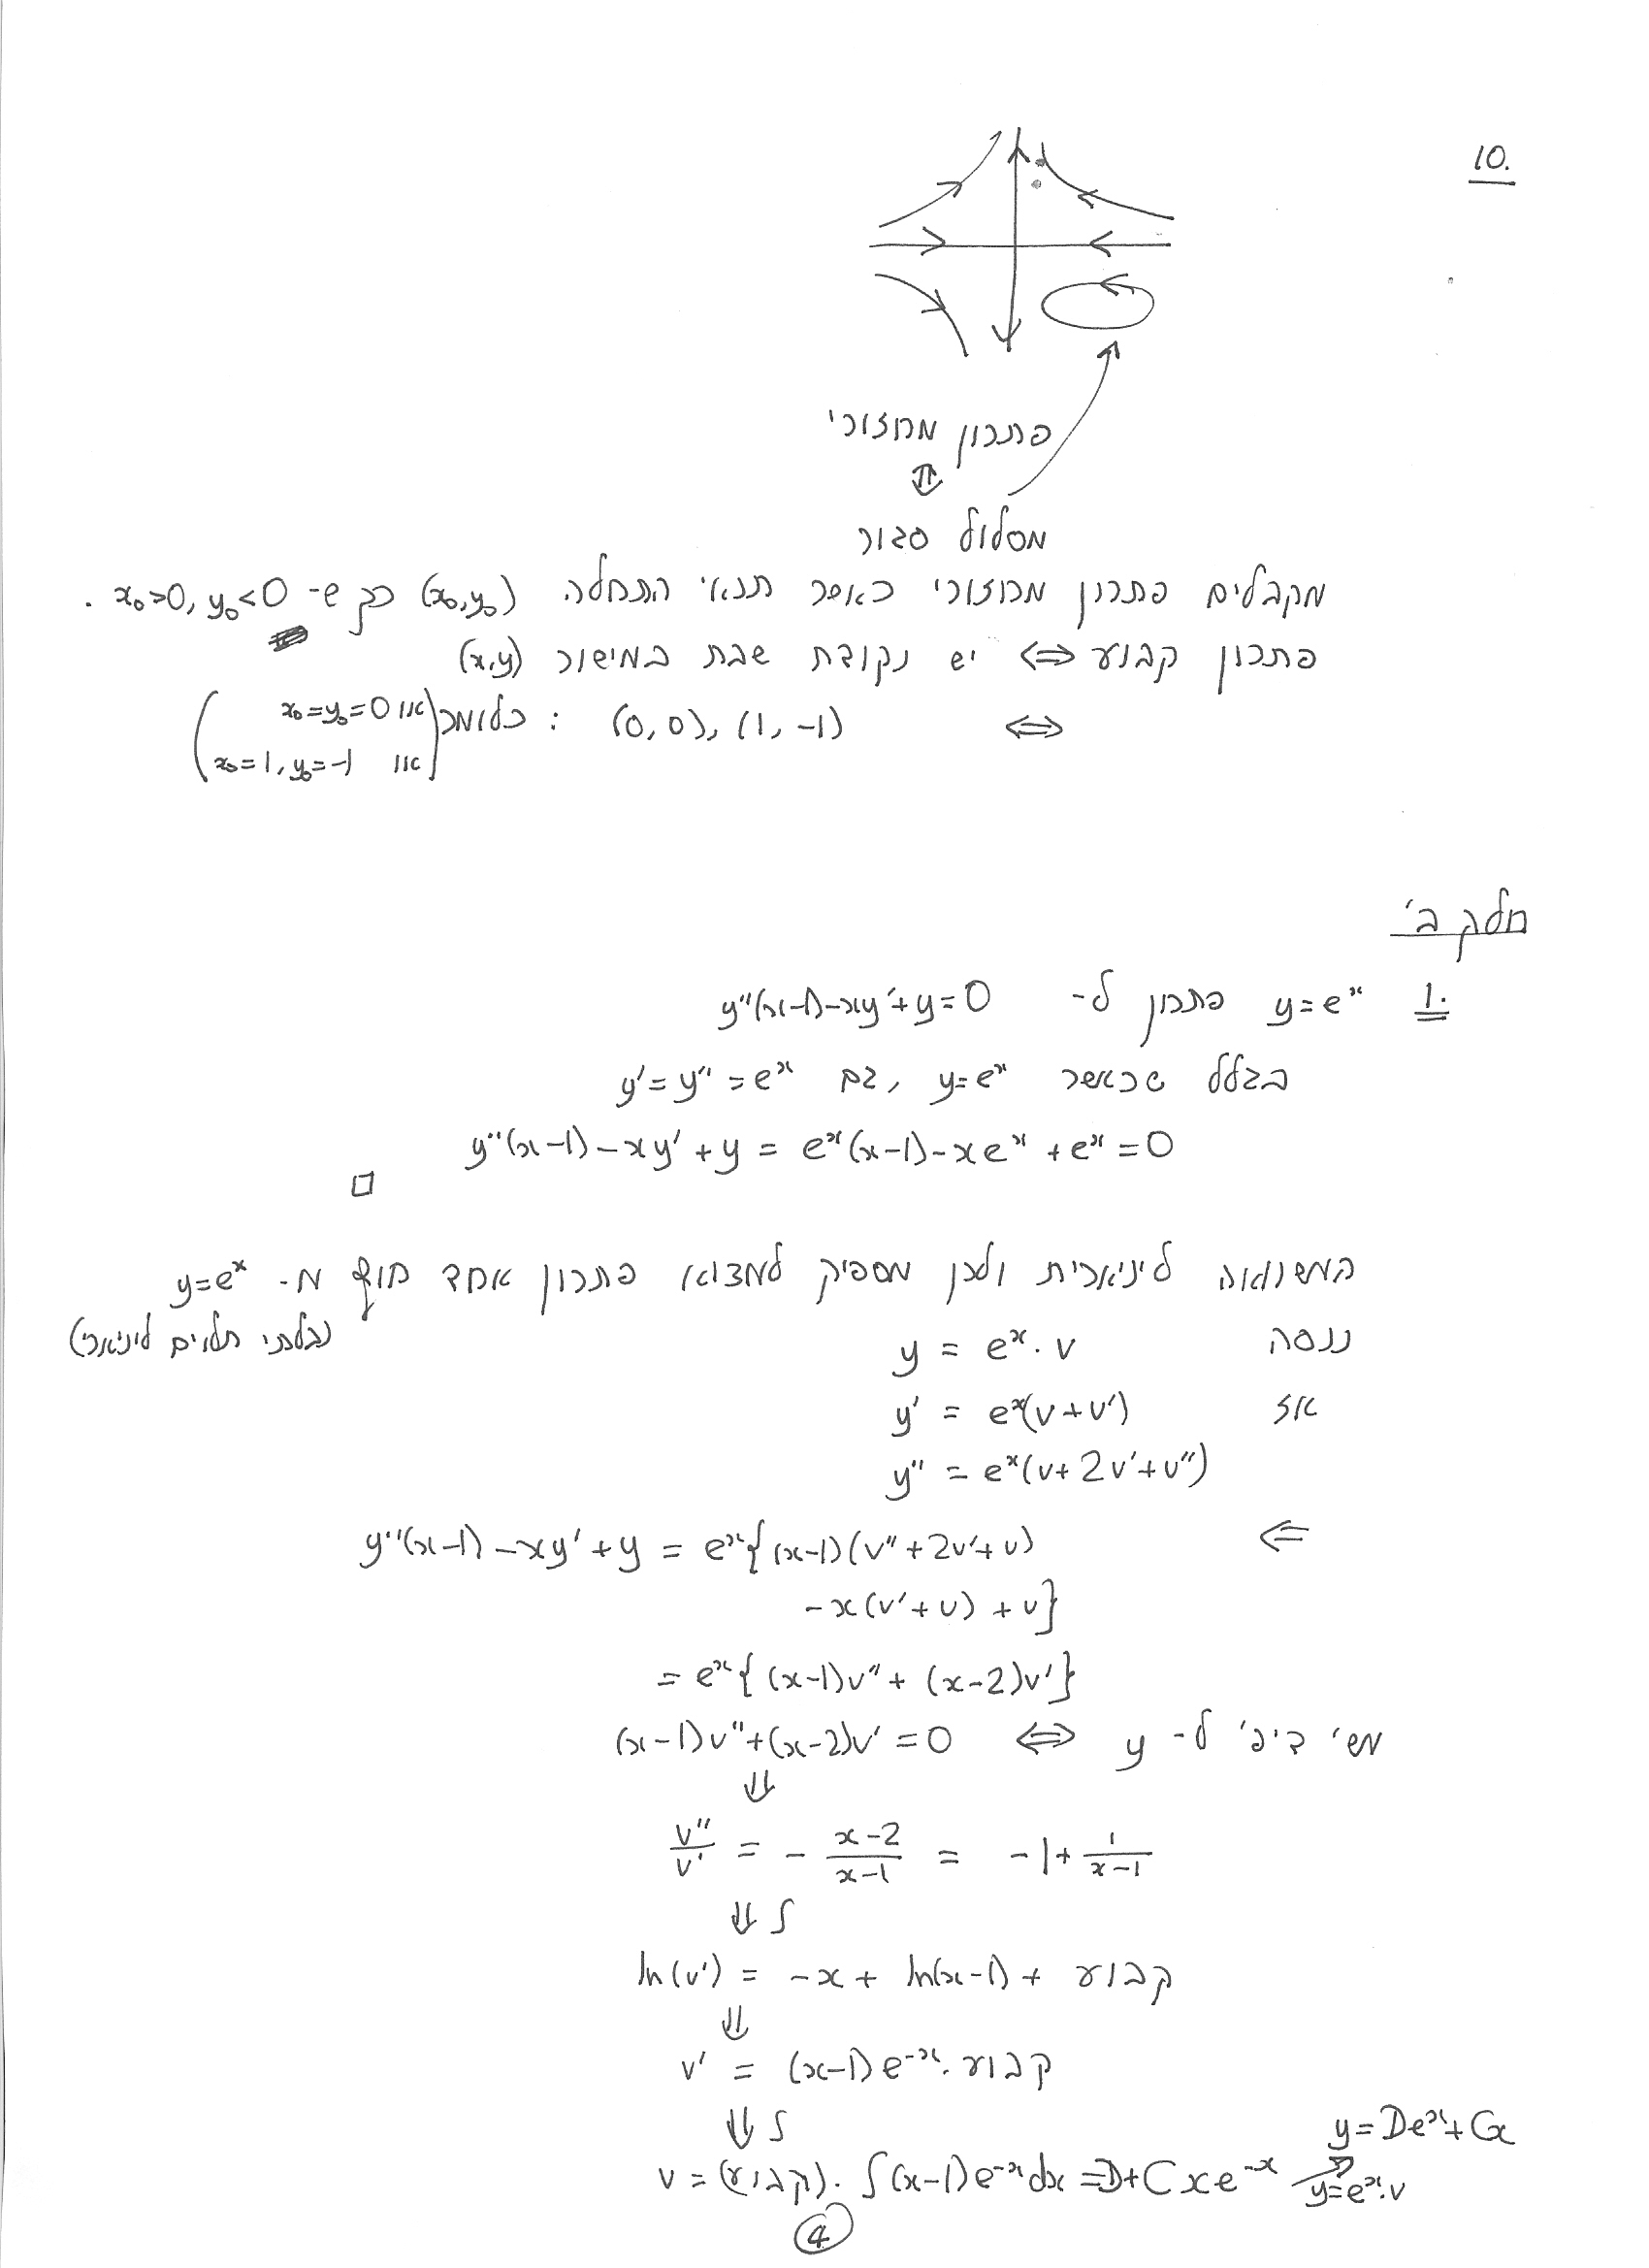 10.
פתרון מחזורי
⇕
מסלול סגור
מקבלים פתרון מחזורי כאשר תנאי התחלה (x₀,y₀) כך ש- x₀>0, y₀<0 .
פתרון קבוע ⇔ יש נקודת שבת במישור (x,y)
⇔ (0,0), (1,-1) : כלומר (או x₀=y₀=0
או x₀=1, y₀=-1)
חלק ב'
1. y=eˣ פתרון ל- y''(x-1)-xy'+y=0
בגלל שכאשר y=eˣ, גם y'=y''=eˣ
y''(x-1)-xy'+y = eˣ(x-1)-xeˣ+eˣ=0
□
המשוואה לינארית ולכן מספיק למצוא פתרון אחד חוץ מ- y=eˣ
(בלתי תלוים לינארי)
ננסה y = eˣ·v
אז y' = eˣ(v+v')
y'' = eˣ(v+2v'+v'')
⇐ y''(x-1)-xy'+y = eˣ{(x-1)(v''+2v'+v)
-x(v'+v)+v}
= eˣ{(x-1)v''+(x-2)v'}
מש' דיפ' ל- y ⇔ (x-1)v''+(x-2)v'=0
⇓
v''/v' = - (x-2)/(x-1) = -1+ 1/(x-1)
⇓ ∫
ln(v') = -x + ln(x-1) + קבוע
⇓
v' = (x-1)e⁻ˣ. קבוע
⇓ ∫
y=Deˣ+Cx
v = (קבוע). ∫(x-1)e⁻ˣdx = D+Cxe⁻ˣ ↗ y=eˣ.v
4